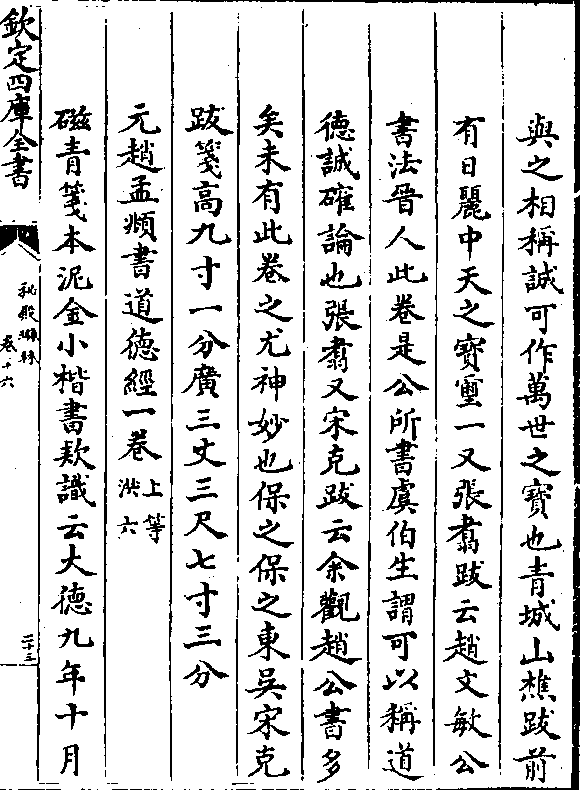 與之相稱誠可作萬世之寶也青城山樵跋前
有日麗中天之寶璽一又張翥跋云趙文敏公
書法晉人此卷是公所書虞伯生謂可以稱道
德誠確論也張翥又宋克跋云余觀趙公書多
矣未有此卷之尤神妙也保之保之東吳宋克
跋箋高九寸一分廣三丈三尺七寸三分
元趙孟頫書道德經一卷上等洪六
磁青箋本泥金小楷書款識云大德九年十月
欽定四庫全書
秘殿珠林
卷十六
二十三